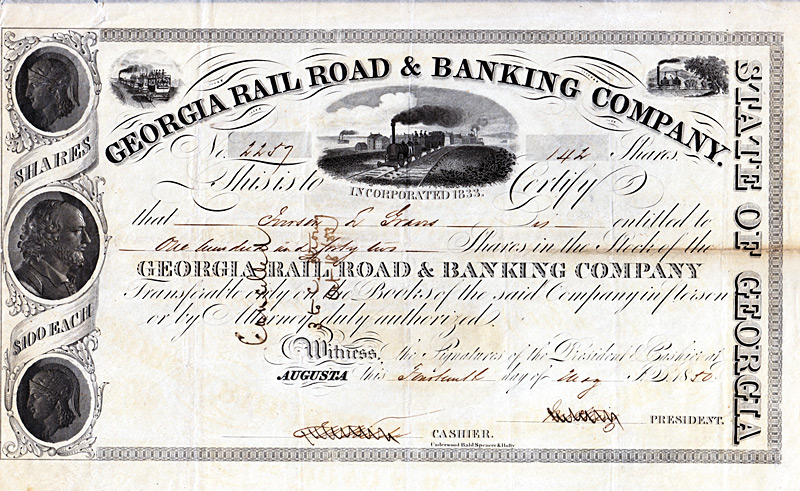 GEORGIA RAIL ROAD & BANKING COMPANY.
STATE OF GEORGIA
SHARES
$100 EACH
No. 2257
142 Shares.
INCORPORATED 1833.
This is to Certify
that is entitled to
One hundred and forty two Shares in the Stock of the
GEORGIA RAIL ROAD & BANKING COMPANY
Transferable only on the Books of the said Company in person
or by Attorney duly authorized.
Witness, the Signatures of the President & Cashier at
AUGUSTA this day of May A.D. 1850.
PRESIDENT.
CASHIER.
Underwood Bald Spencer & Hufty
Cancelled